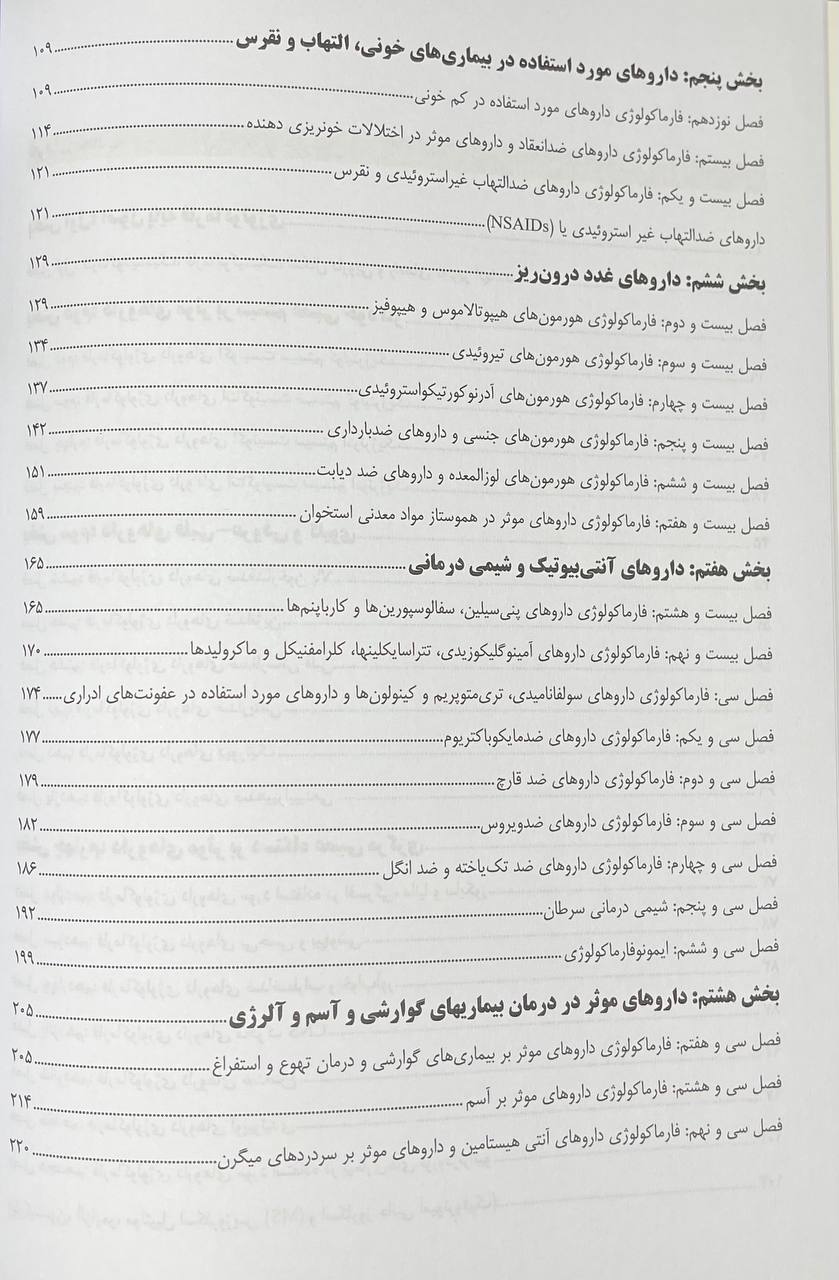 بخش پنجم: داروهای مورد استفاده در بیماری‌های خونی، التهاب و نقرس ۱۰۹
فصل نوزدهم: فارماکولوژی داروهای مورد استفاده در کم خونی ۱۰۹
فصل بیستم: فارماکولوژی داروهای ضدانعقاد و داروهای موثر در اختلالات خونریزی دهنده ۱۱۴
فصل بیست و یکم: فارماکولوژی داروهای ضدالتهاب غیراستروئیدی و نقرس ۱۲۱
داروهای ضدالتهاب غیر استروئیدی یا (NSAIDs) ۱۲۱
بخش ششم: داروهای غدد درون‌ریز ۱۲۹
فصل بیست و دوم: فارماکولوژی هورمون‌های هیپوتالاموس و هیپوفیز ۱۲۹
فصل بیست و سوم: فارماکولوژی هورمون‌های تیروئیدی ۱۳۴
فصل بیست و چهارم: فارماکولوژی هورمون‌های آدرنوکورتیکواستروئیدی ۱۳۷
فصل بیست و پنجم: فارماکولوژی هورمون‌های جنسی و داروهای ضدبارداری ۱۴۲
فصل بیست و ششم: فارماکولوژی هورمون‌های لوزالمعده و داروهای ضد دیابت ۱۵۱
فصل بیست و هفتم: فارماکولوژی داروهای موثر در هموستاز مواد معدنی استخوان ۱۵۹
بخش هفتم: داروهای آنتی‌بیوتیک و شیمی درمانی ۱۶۵
فصل بیست و هشتم: فارماکولوژی داروهای پنی‌سیلین، سفالوسپورین‌ها و کارباپنم‌ها ۱۶۵
فصل بیست و نهم: فارماکولوژی داروهای آمینوگلیکوزیدی، تتراسایکلینها، کلرامفنیکل و ماکرولیدها ۱۷۰
فصل سی: فارماکولوژی داروهای سولفانامیدی، تری‌متوپریم و کینولون‌ها و داروهای مورد استفاده در عفونت‌های ادراری ۱۷۴
فصل سی و یکم: فارماکولوژی داروهای ضدمایکوباکتریوم ۱۷۷
فصل سی و دوم: فارماکولوژی داروهای ضد قارچ ۱۷۹
فصل سی و سوم: فارماکولوژی داروهای ضدویروس ۱۸۲
فصل سی و چهارم: فارماکولوژی داروهای ضد تک‌یاخته و ضد انگل ۱۸۶
فصل سی و پنجم: شیمی درمانی سرطان ۱۹۲
فصل سی و ششم: ایمونوفارماکولوژی ۱۹۹
بخش هشتم: داروهای موثر در درمان بیماریهای گوارشی و آسم و آلرژی ۲۰۵
فصل سی و هفتم: فارماکولوژی داروهای موثر بر بیماری‌های گوارشی و درمان تهوع و استفراغ ۲۰۵
فصل سی و هشتم: فارماکولوژی داروهای موثر بر آسم ۲۱۴
فصل سی و نهم: فارماکولوژی داروهای آنتی هیستامین و داروهای موثر بر سردردهای میگرن ۲۲۰